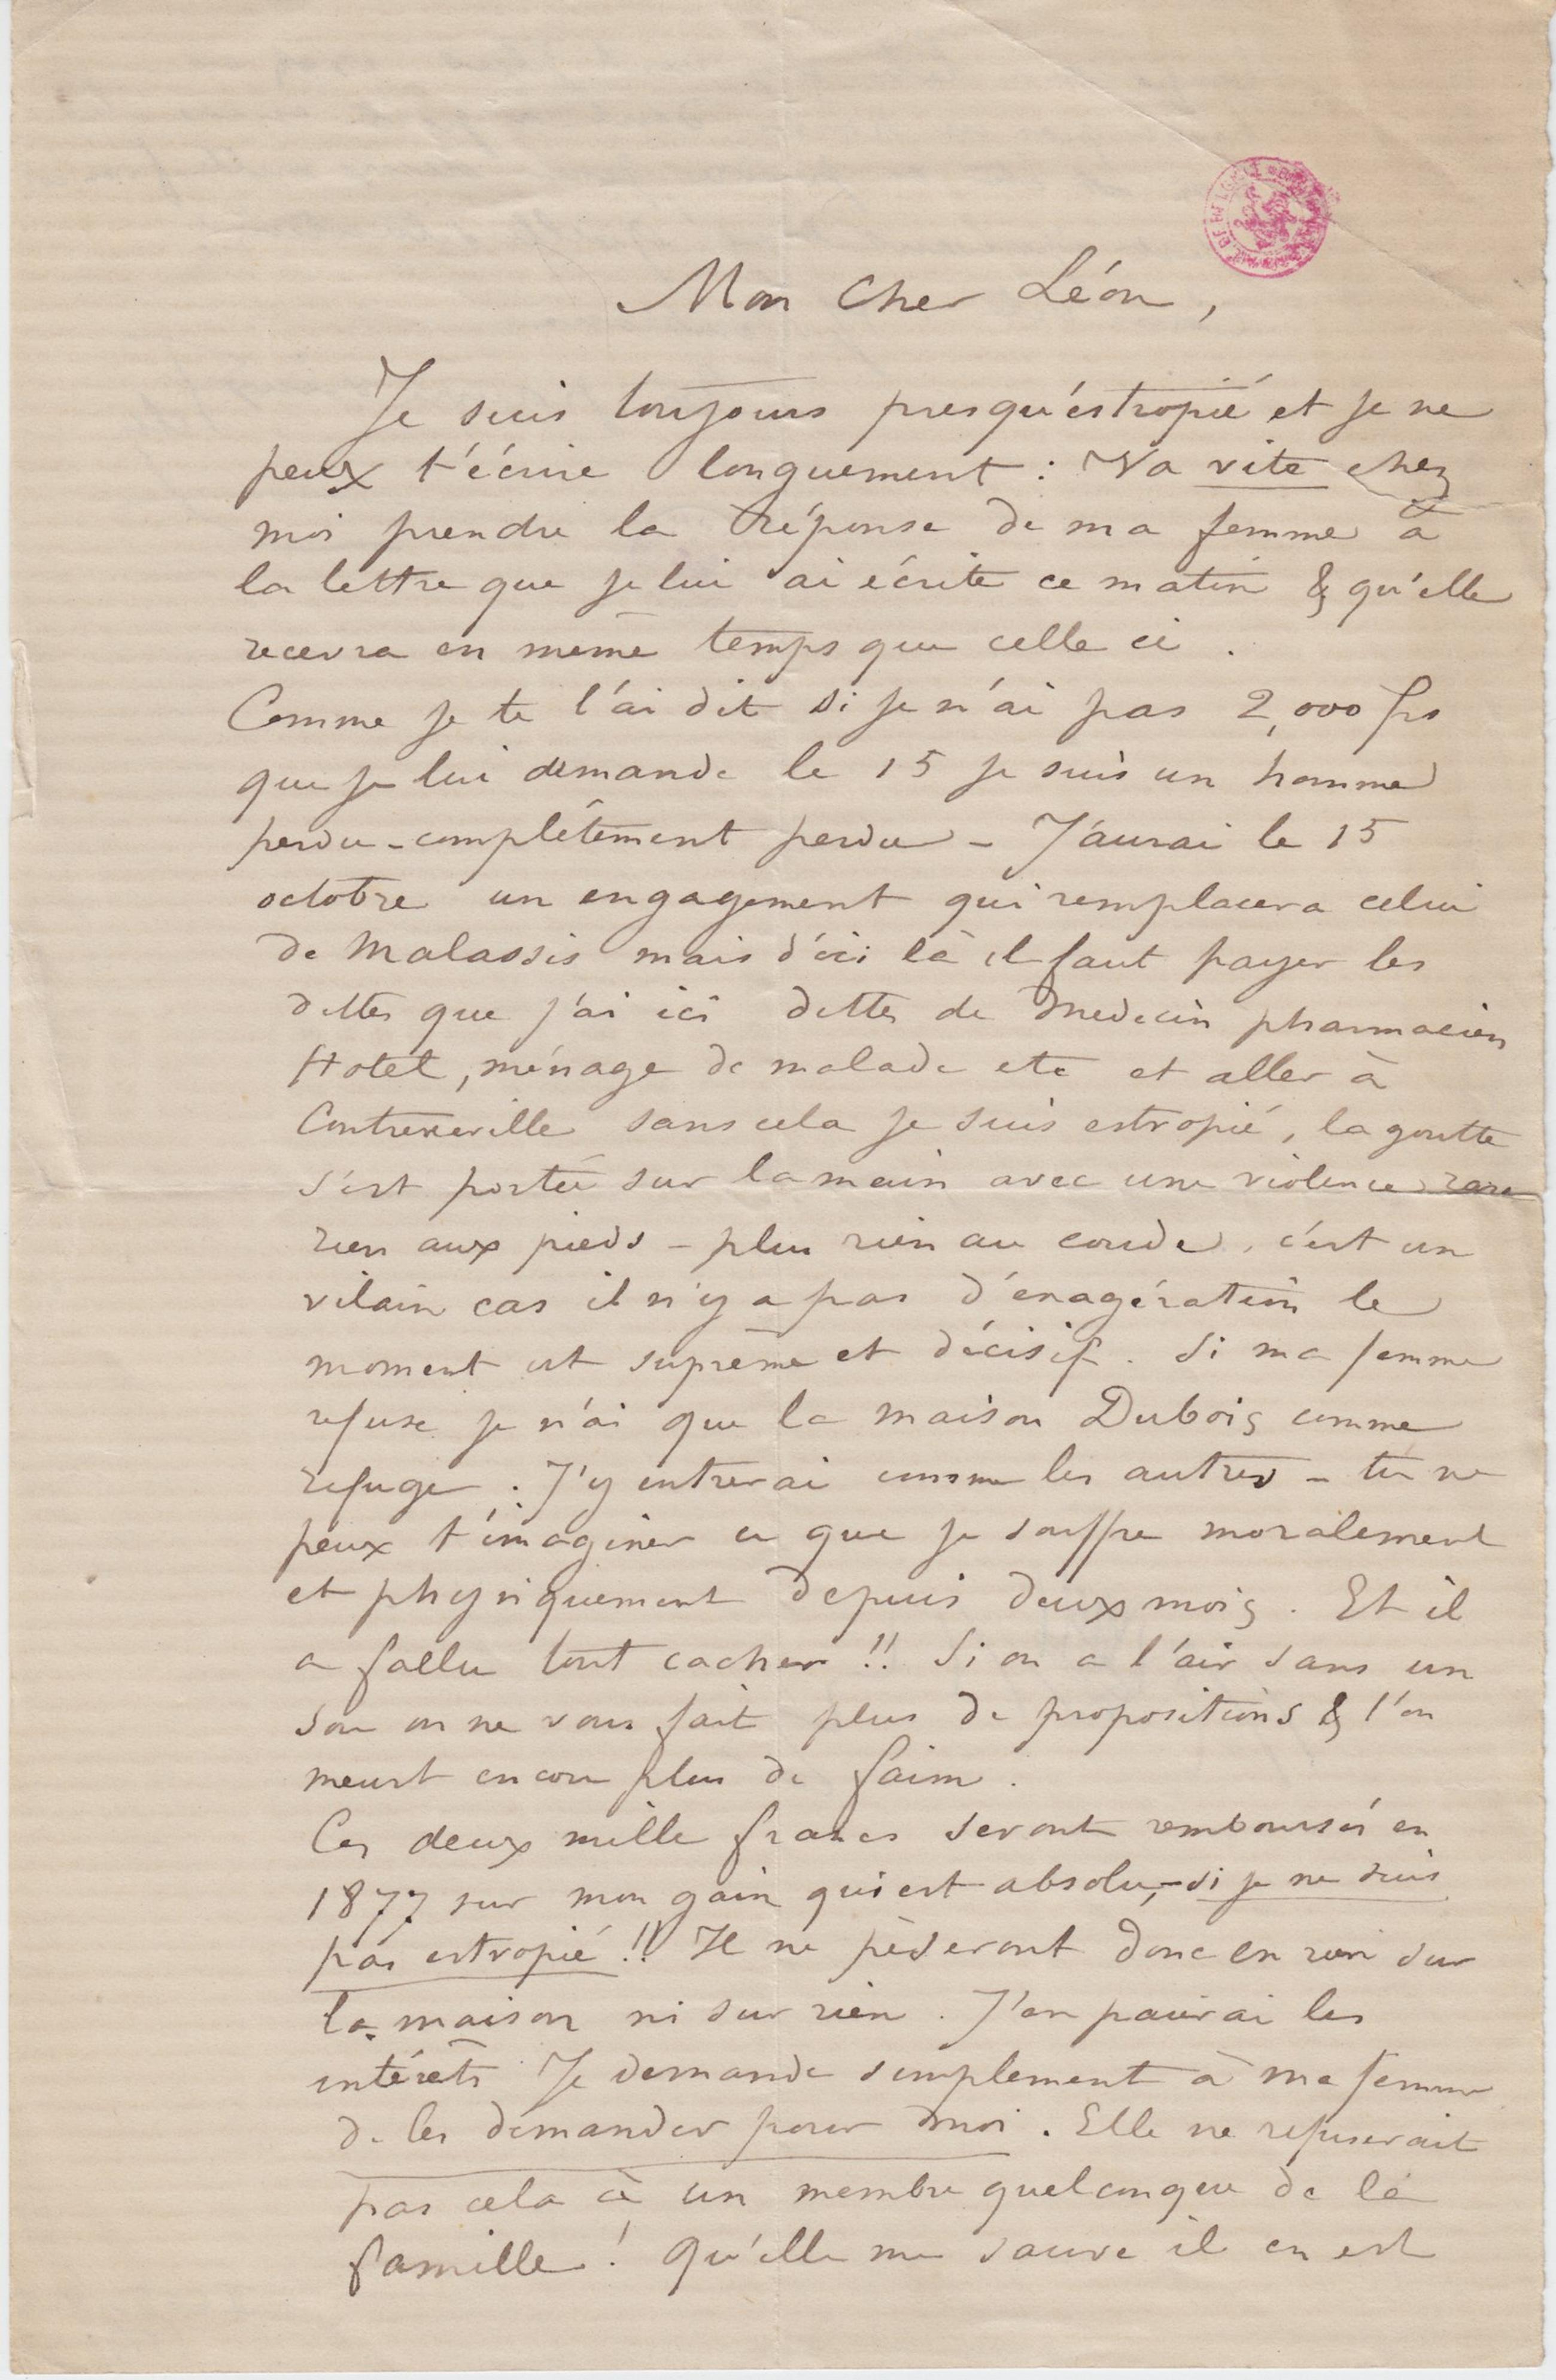 Mon Cher Léon,
Je suis toujours presqu'éstropié et je ne
peux t'écrire longuement : Va vite chez
moi prendre la réponse de ma femme à
la lettre que je lui ai écrite ce matin & qu'elle
recevra en même temps que celle ci.
Comme je te l'ai dit si je n'ai pas 2,000 frs
que je lui demande le 15 je suis un homme
perdu - complétement perdu - J'aurai le 15
octobre un engagement qui remplacera celui
de Malassis mais d'ici là il faut payer les
dettes que j'ai ici dettes de Medecin pharmacien
Hotel, ménage de malade etc et aller à
Contrexeville sans cela je suis estropié, la goutte
s'est portée sur la main avec une violence rare
rien aux pieds - plus rien au coude, c'est un
vilain cas il n'y a pas d'éxagération le
moment est suprême et décisif. Si ma femme
refuse je n'ai que la maison Dubois comme
refuge. J'y entrerai comme les autres - tu ne
peux t'imaginer ce que je souffre moralement
et physiquement depuis deux mois. Et il
a fallu tout cacher !! Si on a l'air sans un
sou on ne vous fait plus de propositions & l'on
meurt encore plus de faim.
Ces deux mille francs seront remboursés en
1877 sur mon gain qui est absolu, - si je ne suis
pas estropié !! Il ne pèseront donc en rien sur
la maison ni sur rien. J'en paierai les
intérêts Je demande simplement à ma femme
de les demander pour moi. Elle ne refuserait
pas cela à un membre quelconque de la
famille ! Qu'elle me sauve il en est